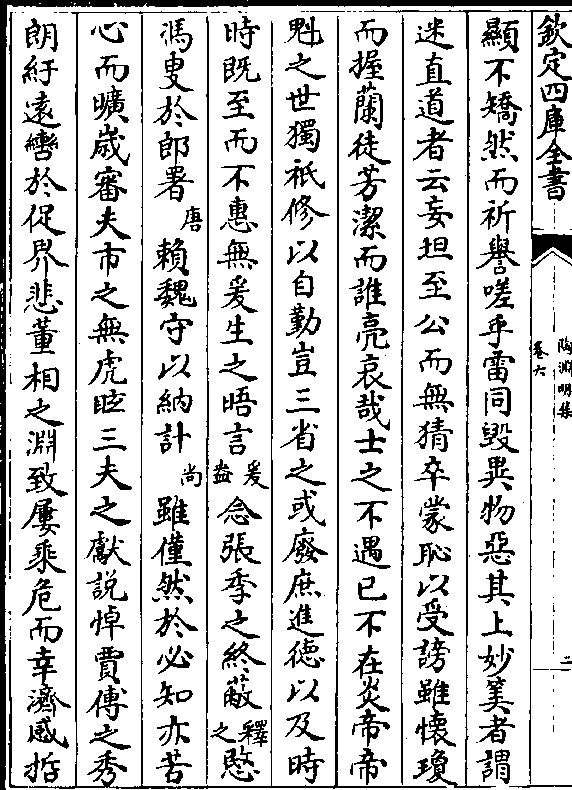 欽定四庫全書
陶淵明集
卷六
二
顯不矯然而祈譽嗟乎雷同毀異物惡其上妙筭者謂
迷直道者云妄坦至公而無猜卒蒙恥以受謗雖懷瓊
而握蘭徒芳潔而誰亮哀哉士之不遇已不在炎帝帝
魁之世獨祇修以自勤豈三省之或廢庶進德以及時
時既至而不惠無爰生之晤言爰盎念張季之終蔽釋之愍
馮叟於郎署唐賴魏守以納計尚雖僅然於必知亦苦
心而曠歲審夫市之無虎眩三夫之獻說悼賈傅之秀
朗紆遠轡於促界悲董相之淵致屢乘危而幸濟感哲